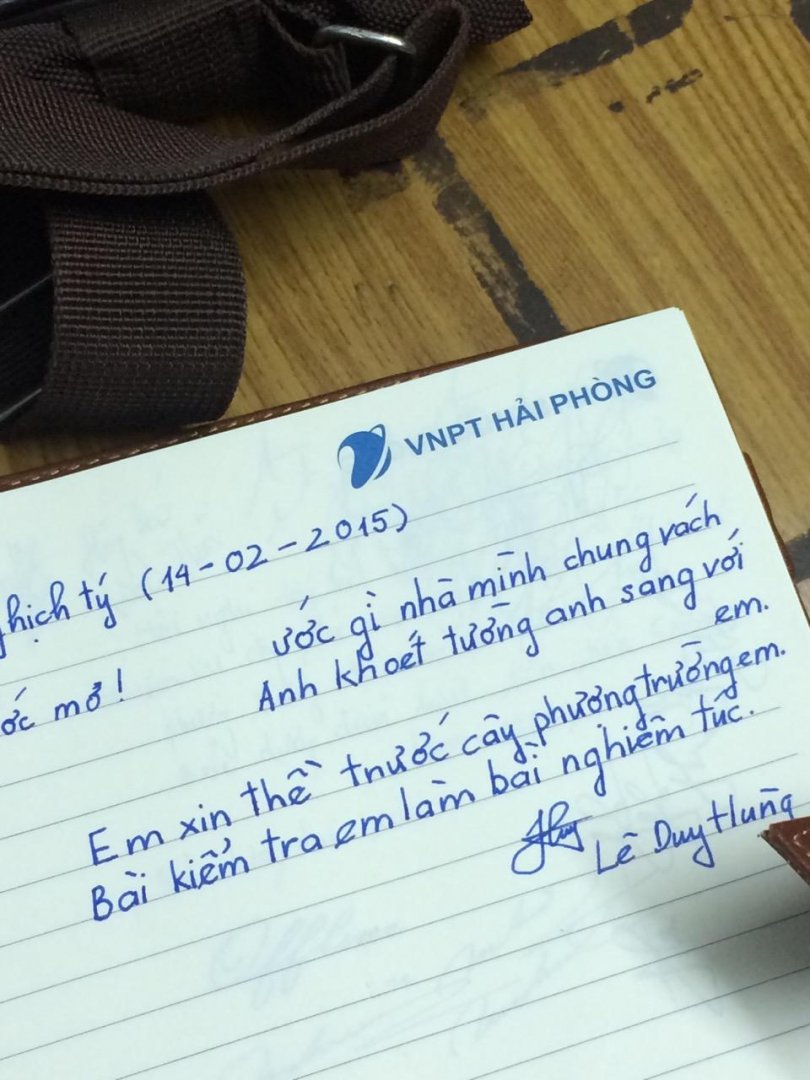 VNPT HẢI PHÒNG
nghịch tý (14-02-2015)
ước gì nhà mình chung vách
Anh khoét tường anh sang với
em.
ước mơ!
Em xin thề trước cây phương trường em.
Bài kiểm tra em làm bài nghiêm túc.
Lê Duy Hưng